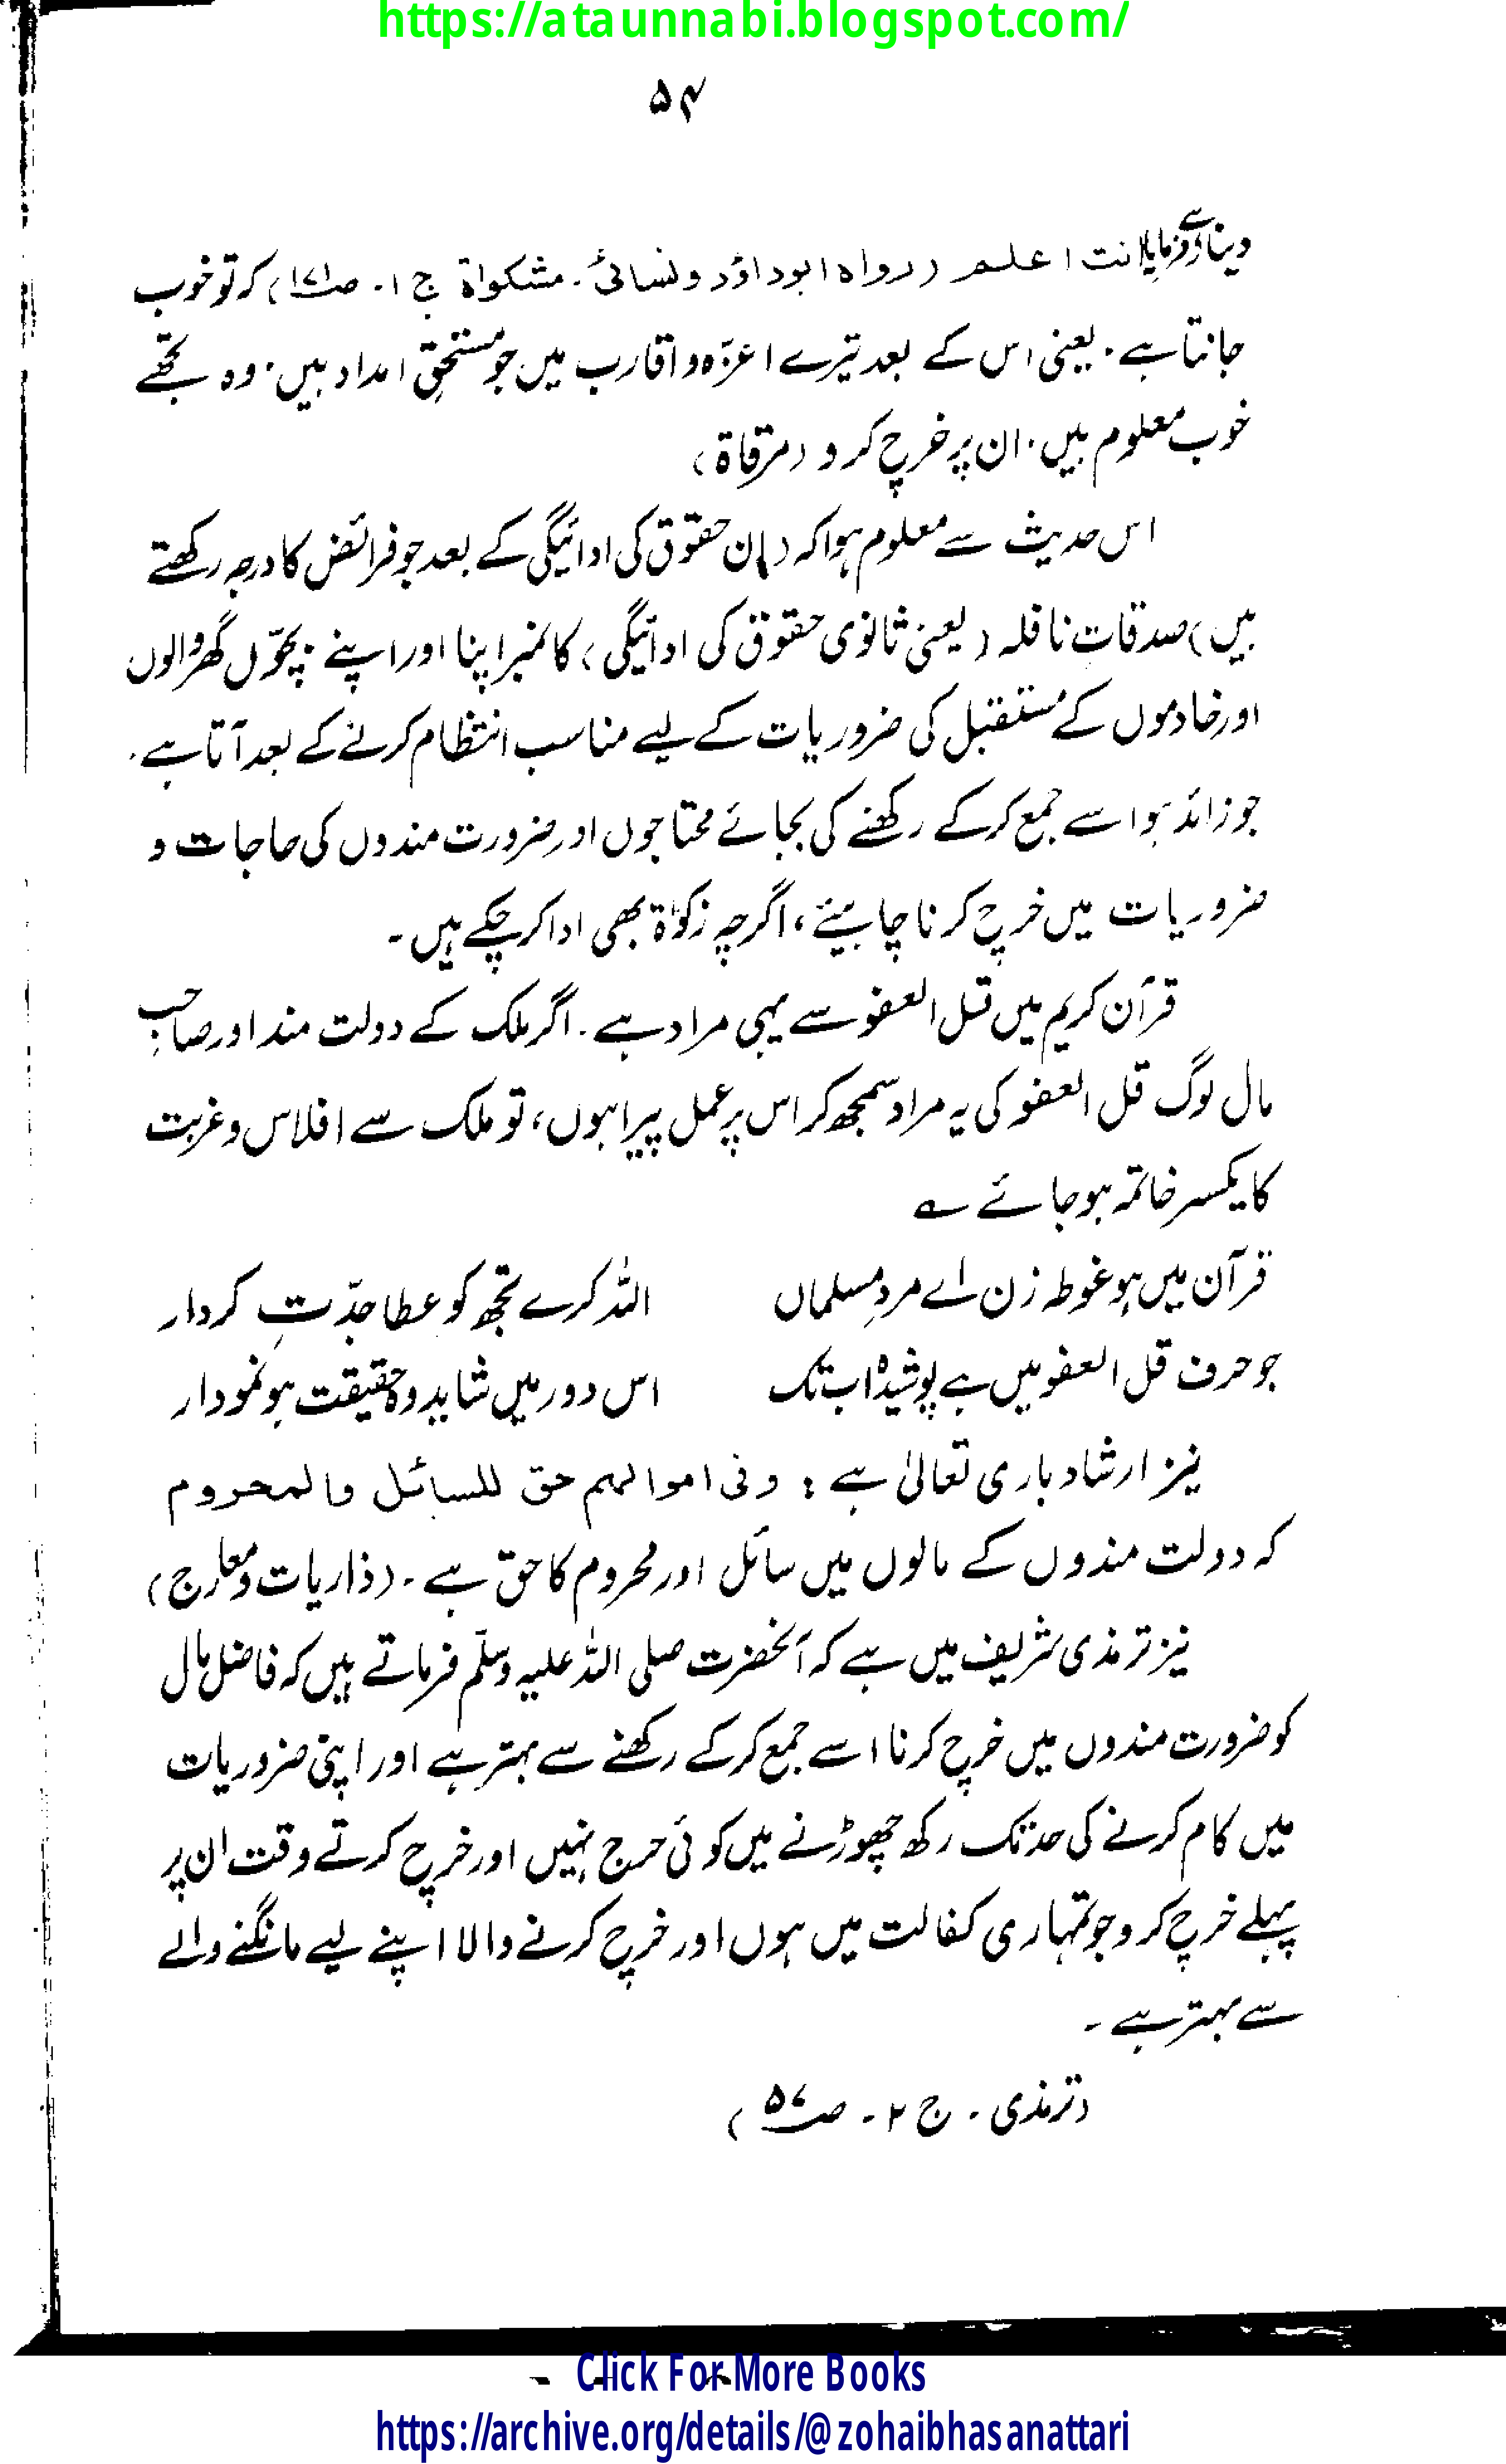 https://ataunnabi.blogspot.com/
۵۴
انت اعلم (رواہ ابوداؤد ونسائی۔ مشکواۃ ج ۱۔ ص۱۷۱) کہ تو خوب
جانتا ہے۔ یعنی اس کے بعد تیرے اعزّہ و اقارب میں جو مستحقِ امداد ہیں۔ وہ تجھے
خوب معلوم ہیں۔ ان پر خرچ کرو (مرقاۃ)
اس حدیث سے معلوم ہوا کہ (ان حقوق کی ادائیگی کے بعد جو فرائض کا درجہ رکھتے
ہیں) صدقاتِ نافلہ (یعنی ثانوی حقوق کی ادائیگی) کا نمبر اپنا اور اپنے بچّوں گھر والوں
اور خادموں کے مستقبل کی ضروریات کے لیے مناسب انتظام کرنے کے بعد آتا ہے۔
جو زائد ہو اسے جمع کرکے رکھنے کی بجائے محتاجوں اور ضرورت مندوں کی حاجات و
ضروریات میں خرچ کرنا چاہیئے، اگرچہ زکوٰۃ بھی ادا کر چکے ہیں۔
قرآن کریم میں قل العفو سے یہی مراد ہے۔ اگر ملک کے دولت مند اور صاحبِ
مال لوگ قل العفو کی یہ مراد سمجھ کر اس پر عمل پیرا ہوں، تو ملک سے افلاس و غربت
کا یکسر خاتمہ ہو جائے ؎
قرآن میں ہو غوطہ زن اے مردِ مسلماں اللہ کرے تجھ کو عطا جدّتِ کردار
جو حرف قل العفو میں ہے پوشیدہ اب تک اس دور میں شاید وہ حقیقت ہو نمودار
نیز ارشاد باری تعالیٰ ہے : وفی اموالہم حق للسائل والمحروم
کہ دولت مندوں کے مالوں میں سائل اور محروم کا حق ہے۔ (ذاریات و معارج)
نیز ترمذی شریف میں ہے کہ آنحضرت صلی اللہ علیہ وسلّم فرماتے ہیں کہ فاضل مال
کو ضرورت مندوں میں خرچ کرنا اسے جمع کرکے رکھنے سے بہتر ہے اور اپنی ضروریات
میں کام کرنے کی حد تک رکھ چھوڑنے میں کوئی حرج نہیں اور خرچ کرتے وقت ان پر
پہلے خرچ کرو جو تمہاری کفالت میں ہوں اور خرچ کرنے والا اپنے لیے مانگنے والے
سے بہتر ہے۔
(ترمذی۔ ج ۲۔ ص۵۷)
Click For More Books
https://archive.org/details/@zohaibhasanattari